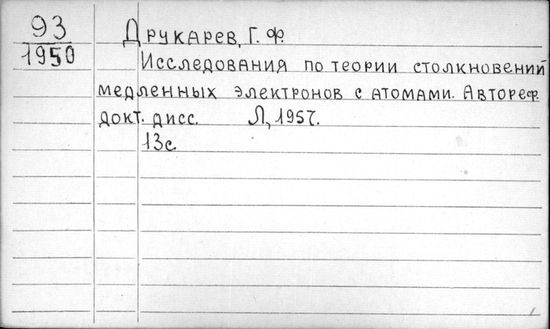 93
1950
Друкарев, Г. Ф.
Исследования по теории столкновений
медленных электронов с атомами. Автореф.
докт. дисс. Л, 1957.
13с.